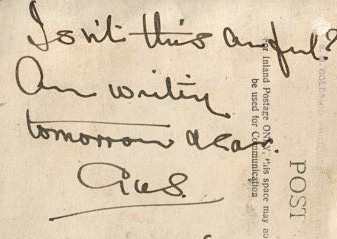 Isn't this awful?
Am writing
tomorrow dear.
Gus.
For Inland Postage ONLY this space may
be used for Communication
POST